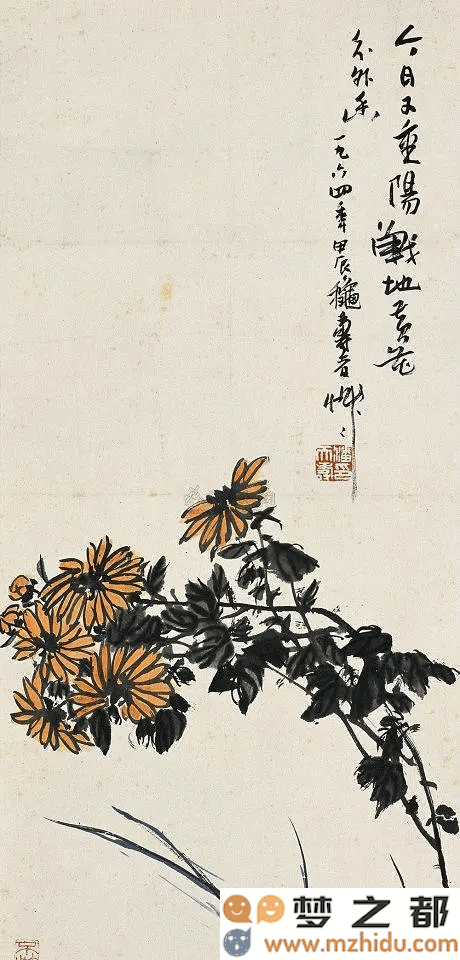 今日又重陽戰地黃花
分外香一九六四年甲辰龝壽者
潘印
天壽
梦之都
www.mzhidu.com